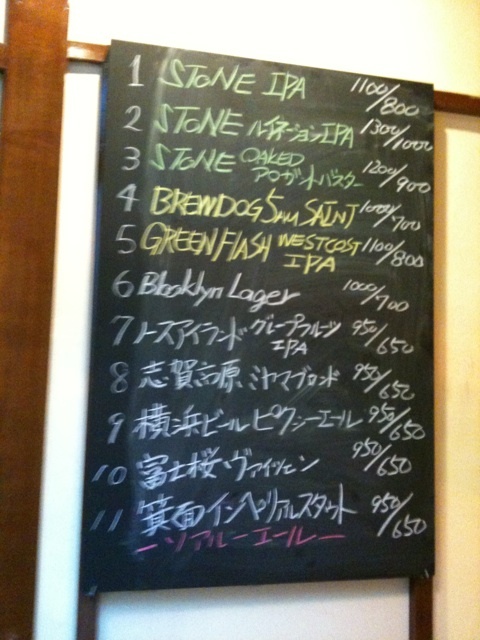 1 STONE IPA 1100/800
2 STONE ルイネーションIPA 1300/1000
3 STONE OAKED アロガントバスター 1200/900
4 BREWDOG 5AM SAINT 1000/700
5 GREENFLASH WESTCOST IPA 1100/800
6 Blooklyn Lager 1000/700
7 ノースアイランド グレープフルーツ IPA 950/650
8 志賀高原 ミヤマブロンド 950/650
9 横浜ビール ピクシーエール 950/650
10 富士桜・ヴァイツェン 950/650
11 箕面インペリアルスタウト 950/650
ーリアルーエールー